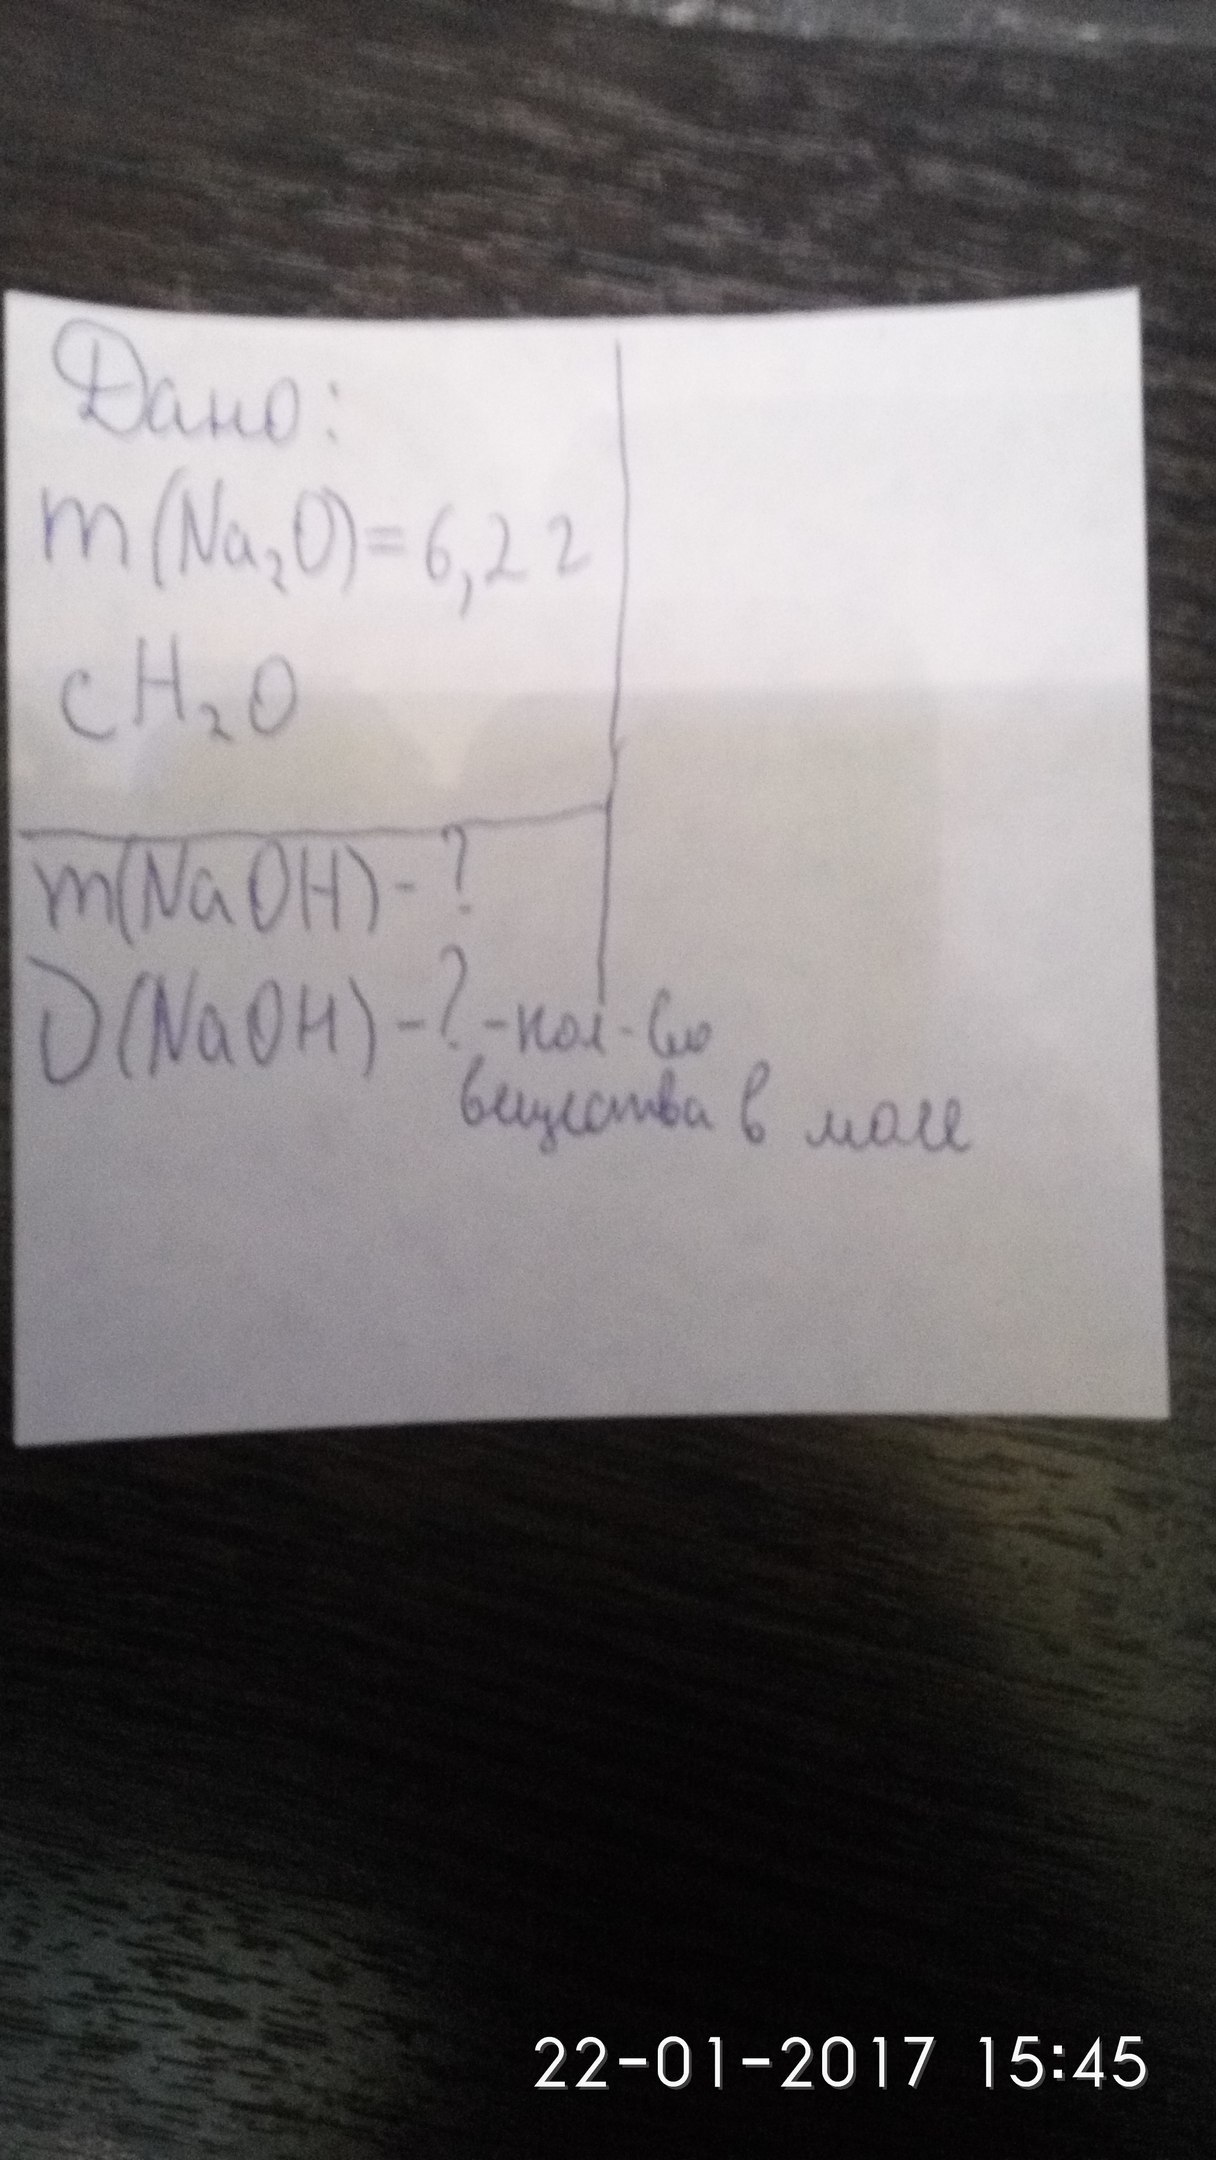 Дано:
m(Na₂O)=6,2 г
с H₂O
m(NaOH)-?
ν(NaOH)-?-кол-во
вещества в моле
22-01-2017 15:45